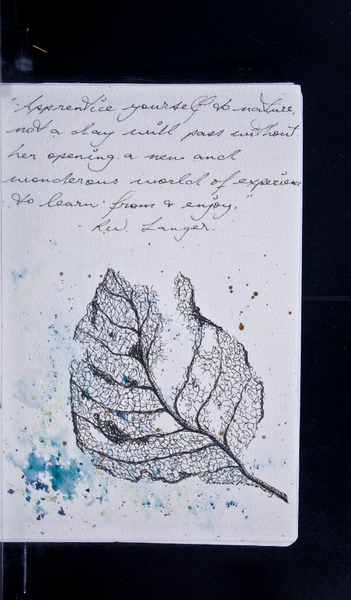 "Apprentice yourself to nature,
not a day will pass without
her opening a new and
wonderous world of experience
to learn from & enjoy."
- R.W. Langer.